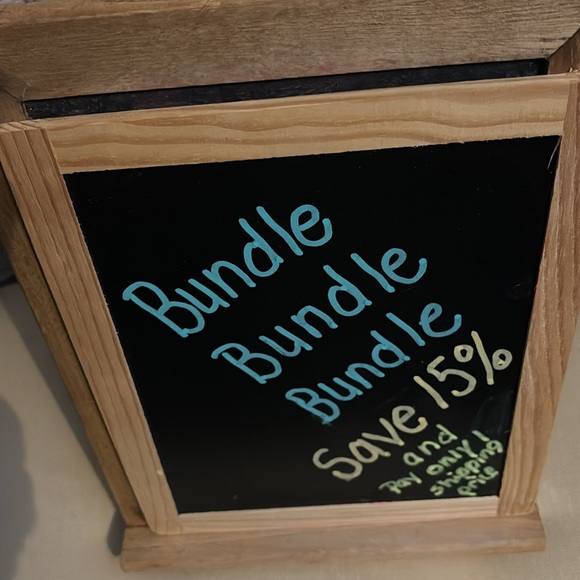 Bundle
Bundle
Bundle
Save 15%
and
Pay only 1
shipping
price